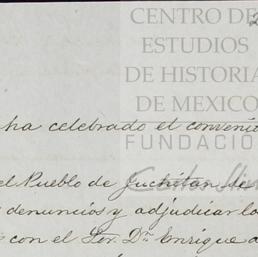 CENTRO DE
ESTUDIOS
DE HISTORIA
DE MEXICO
FUNDACIÓN
Carlos
ha celebrado el convenio
el Pueblo de Juchitan de
denuncios y adjudicar lo
con el Sor. Dn. Enrique